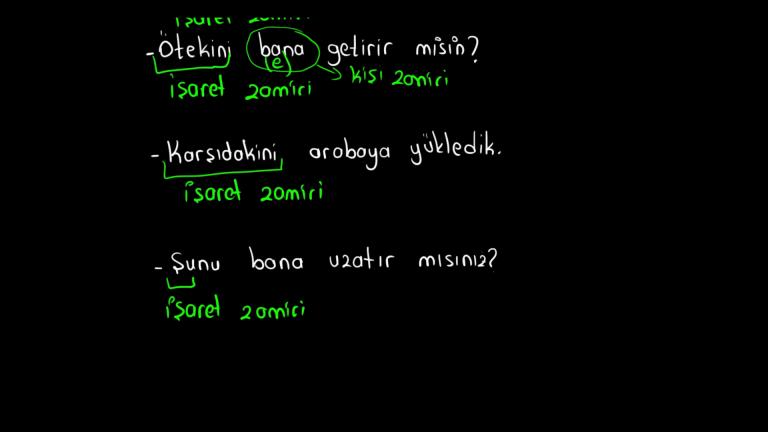 işaret zamiri
-Ötekini bana getirir misin?
(e)
işaret zamiri → kişi zamiri
-Karşıdakini arabaya yükledik.
işaret zamiri
-Şunu bana uzatır mısınız?
işaret zamiri